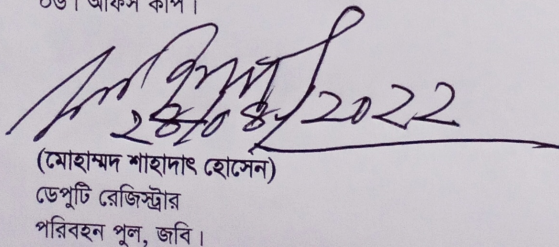 ০৬। অফিস কপি।
২৪/০৪/2022
(মোহাম্মদ শাহাদাৎ হোসেন)
ডেপুটি রেজিস্ট্রার
পরিবহন পুল, জবি।